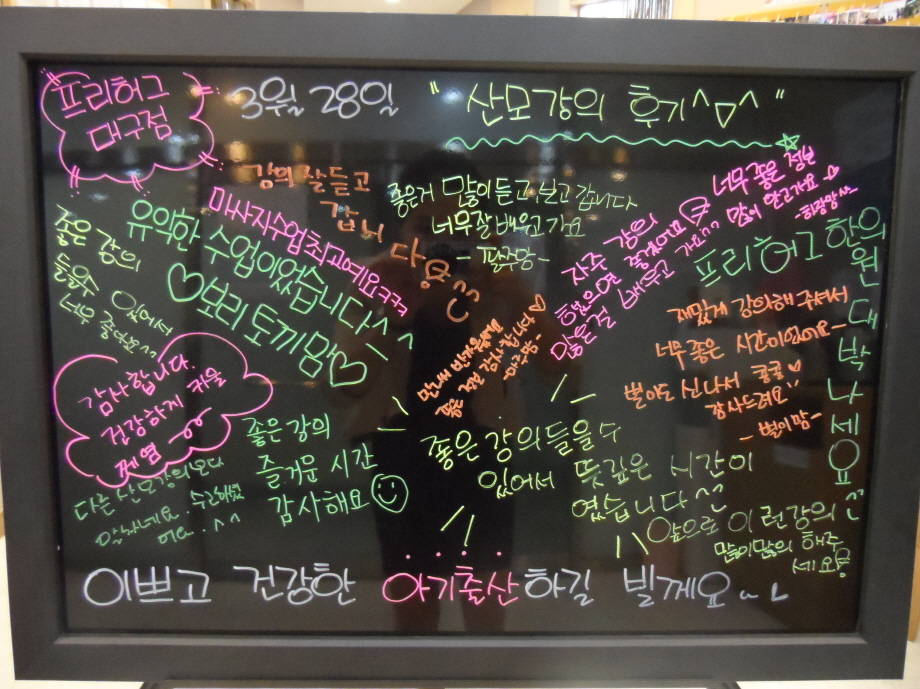 프리허그
대구점
3월 28일 "산모강의 후기^▽^"
강의 잘듣고
갑니다
좋은거 많이듣고, 보고 갑니다
너무잘배워고가요
너무 좋은 정보
많이 알고가요
-희망맘-
마사지수업최고에요ㅋㅋ
유익한 수업이었습니다^^
♡보리토끼맘♡
좋은 강의
들을수 있어서
너무 좋아요^^
자주 강의
했으면 좋겠어요
많은걸 배우고 가요^^
프리허그 한의원 대박나세요
만나서 반가웠어요
좋은 정보 감사합니다♡
재밌게 강의해 주셔서
너무 좋은 시간이었어요~
별이도 신나서 쿵쿵
감사드려요
-별이맘-
감사합니다.
건강하게 키울
께염
좋은 강의
즐거운 시간
감사해요
다른 산모강의보다
좋은 강의들을수
있어서 뜻깊은 시간이
였습니다^^
앞으로 이런강의
많이많이 해주
세요
이쁘고 건강한 아기출산하길 빌게요~